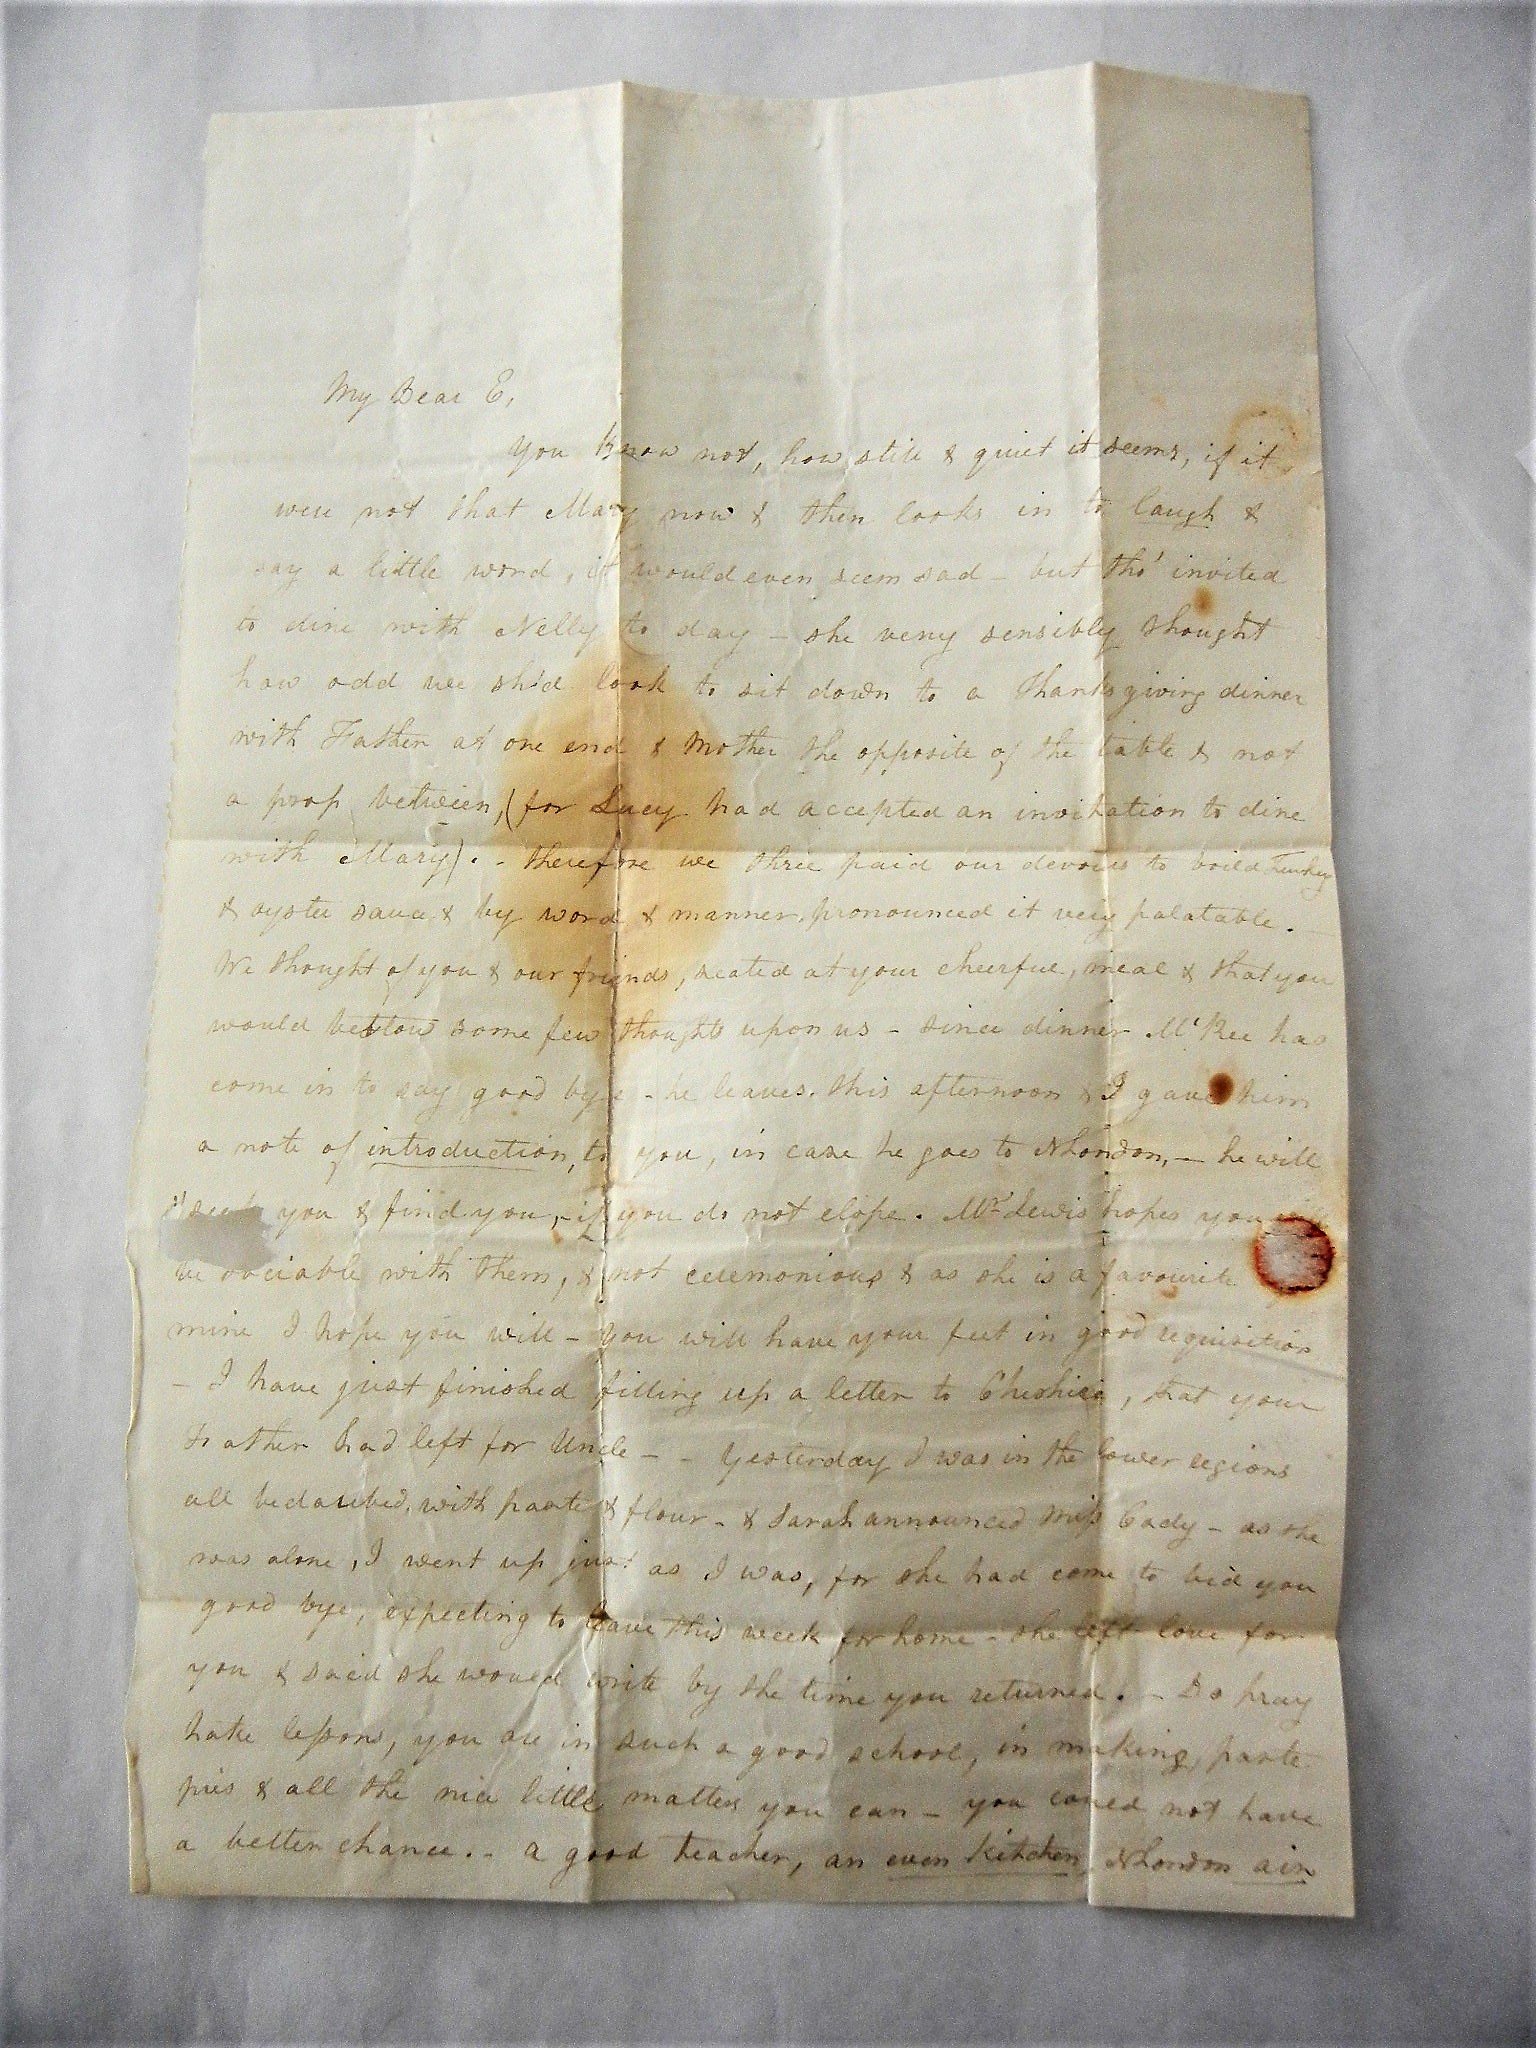 My Dear E,
You know not, how still & quiet it seems, if it
were not that Mary now & then looks in to laugh &
say a little word, it would even seem sad - but tho' invited
to dine with Nelly to day - she very sensibly thought
how odd we sh'd look to sit down to a Thanksgiving dinner
with Father at one end & Mother the opposite of the table & not
a prop between, (for Lucy had accepted an invitation to dine
with Mary). - therefore we three paid our devoirs to boild Turkey
& oyster sauce & by word & manner, pronounced it very palatable. -
We thought of you & our friends, seated at your cheerful, meal & that you
would bestow some few thoughts upon us - since dinner McKee has
come in to say good bye - he leaves this afternoon & I gave him
a note of introduction, to you, in case he goes to NLondon, - he will
you & find you, - if you do not elope. Mrs Lewis hopes you
be sociable with them, & not ceremonious & as she is a favourite
mine I hope you will - you will have your feet in good requisition
- I have just finished filling up a letter to Cheshire, that your
Father had left for Uncle - - Yesterday I was in the lower regions
all bedaubed, with paste & flour - & Sarah announced Miss Cady - as she
was alone, I went up just as I was, for she had come to bid you
good bye, expecting to leave this week for home - she left love for
you & said she would write by the time you returned. - Do pray
take lessons, you are in such a good school, in making, paste
pies & all the nice little matters you can - you could not have
a better chance. - a good teacher, an even kitchen, NLondon air